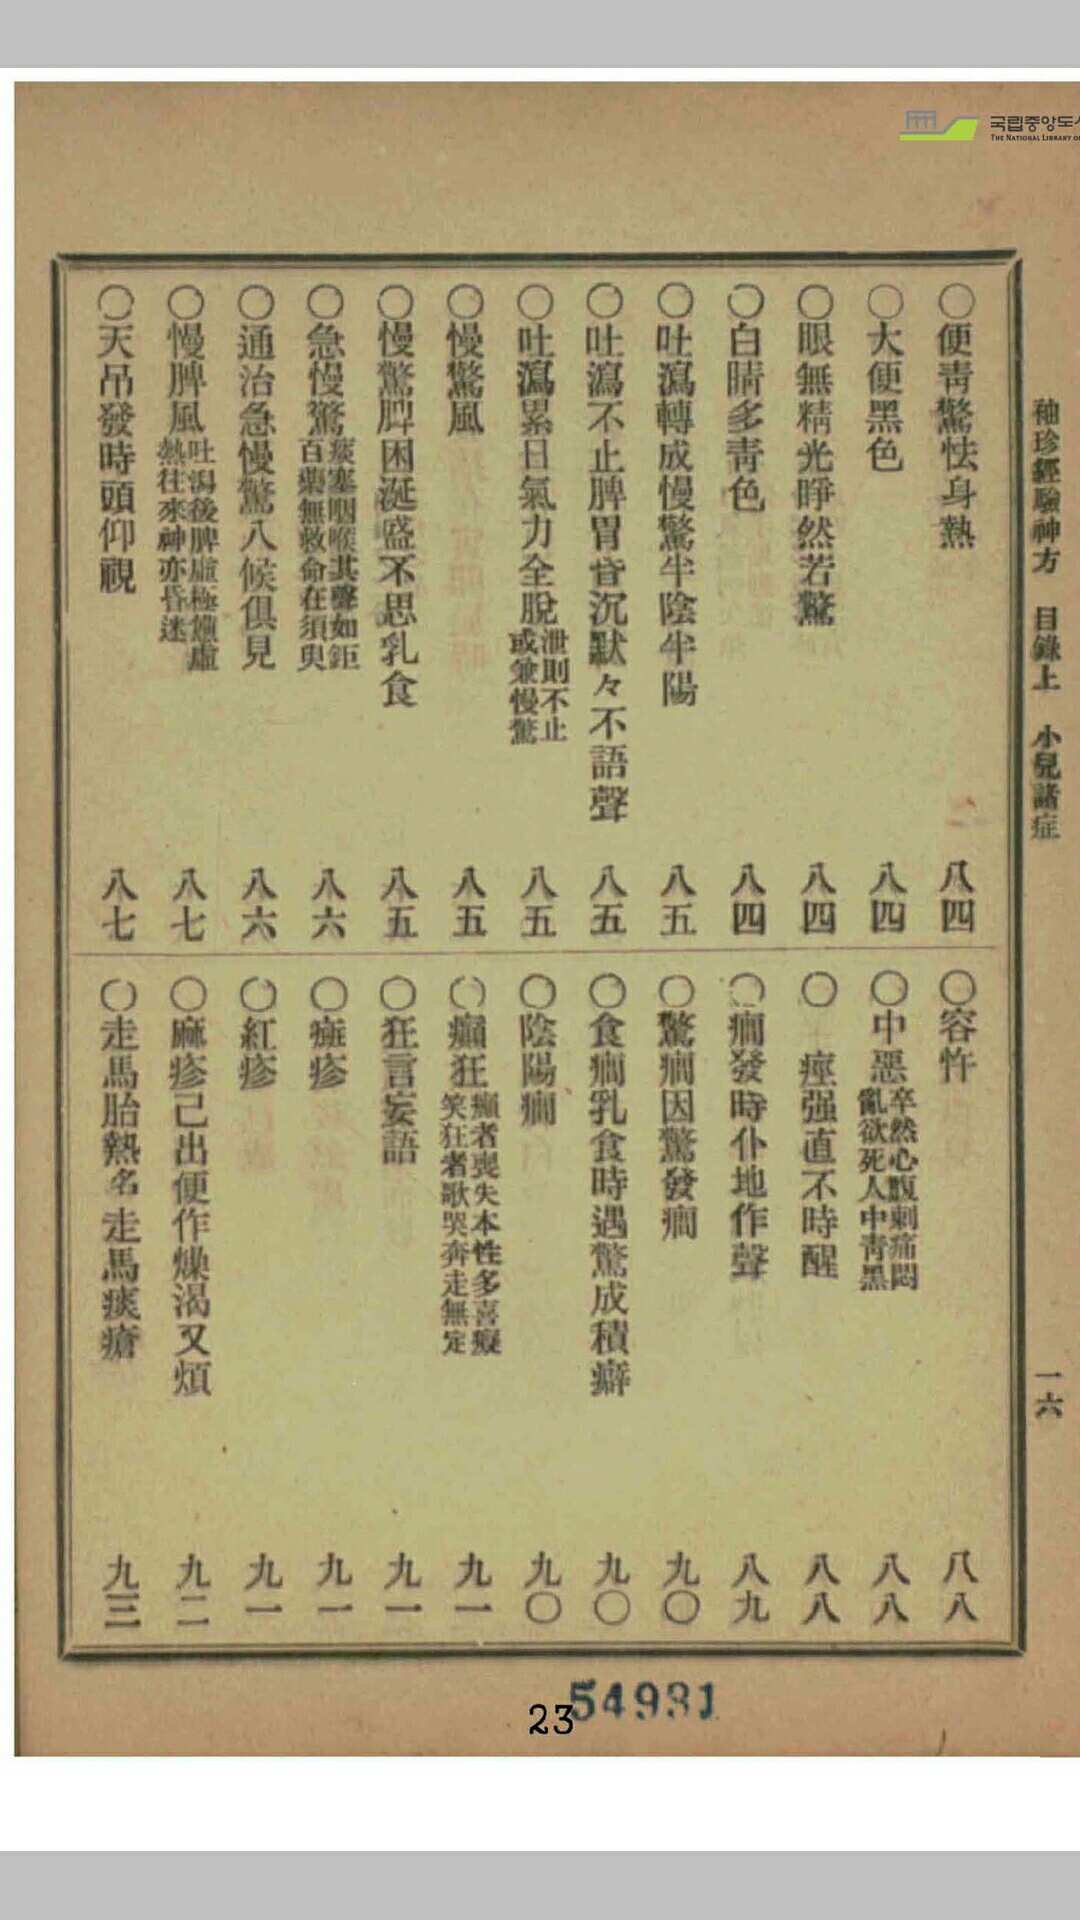 국립중앙도서
THE NATIONAL LIBRARY OF
袖珍經驗神方 目錄上 小兒諸症 一六
〇便靑驚怯身熱 八四
〇大便黑色 八四
〇眼無精光睜然若驚 八四
〇白睛多靑色 八四
〇吐瀉轉成慢驚半陰半陽 八五
〇吐瀉不止脾胃昏沉默々不語聲 八五
〇吐瀉累日氣力全脫泄則不止或兼慢驚 八五
〇慢驚風 八五
〇慢驚脾困涎盛不思乳食 八五
〇急慢驚痰塞咽喉其聲如鉅百藥無救命在須臾 八六
〇通治急慢驚八候俱見 八六
〇慢脾風吐瀉後脾虛極損虛熱往來神亦昏迷 八七
〇天吊發時頭仰視 八七
〇容忤 八八
〇中惡卒然心腹刺痛悶亂欲死人中靑黑 八八
〇痙强直不時醒 八八
〇癎發時仆地作聲 八九
〇驚癎因驚發癎 九〇
〇食癎乳食時遇驚成積癖 九〇
〇陰陽癎 九〇
〇癲狂癲者喪失本性多喜癡笑狂者歌哭奔走無定 九一
〇狂言妄語 九一
〇㾦疹 九一
〇紅疹 九一
〇麻疹已出便作燥渴又煩 九二
〇走馬胎熱名走馬痰瘡 九三
23
54981